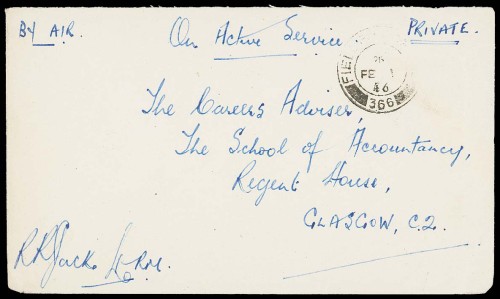 BY AIR.
On Active Service
PRIVATE.
FIEL
26
FE 1
46
366
The Careers Adviser,
The School of Accountancy,
Regent House,
GLASGOW, C.2.